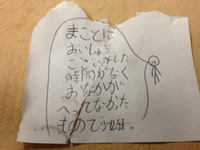 まことに
おいしゅう
ございました
時間がなく
おなかが
へってなかた
もので